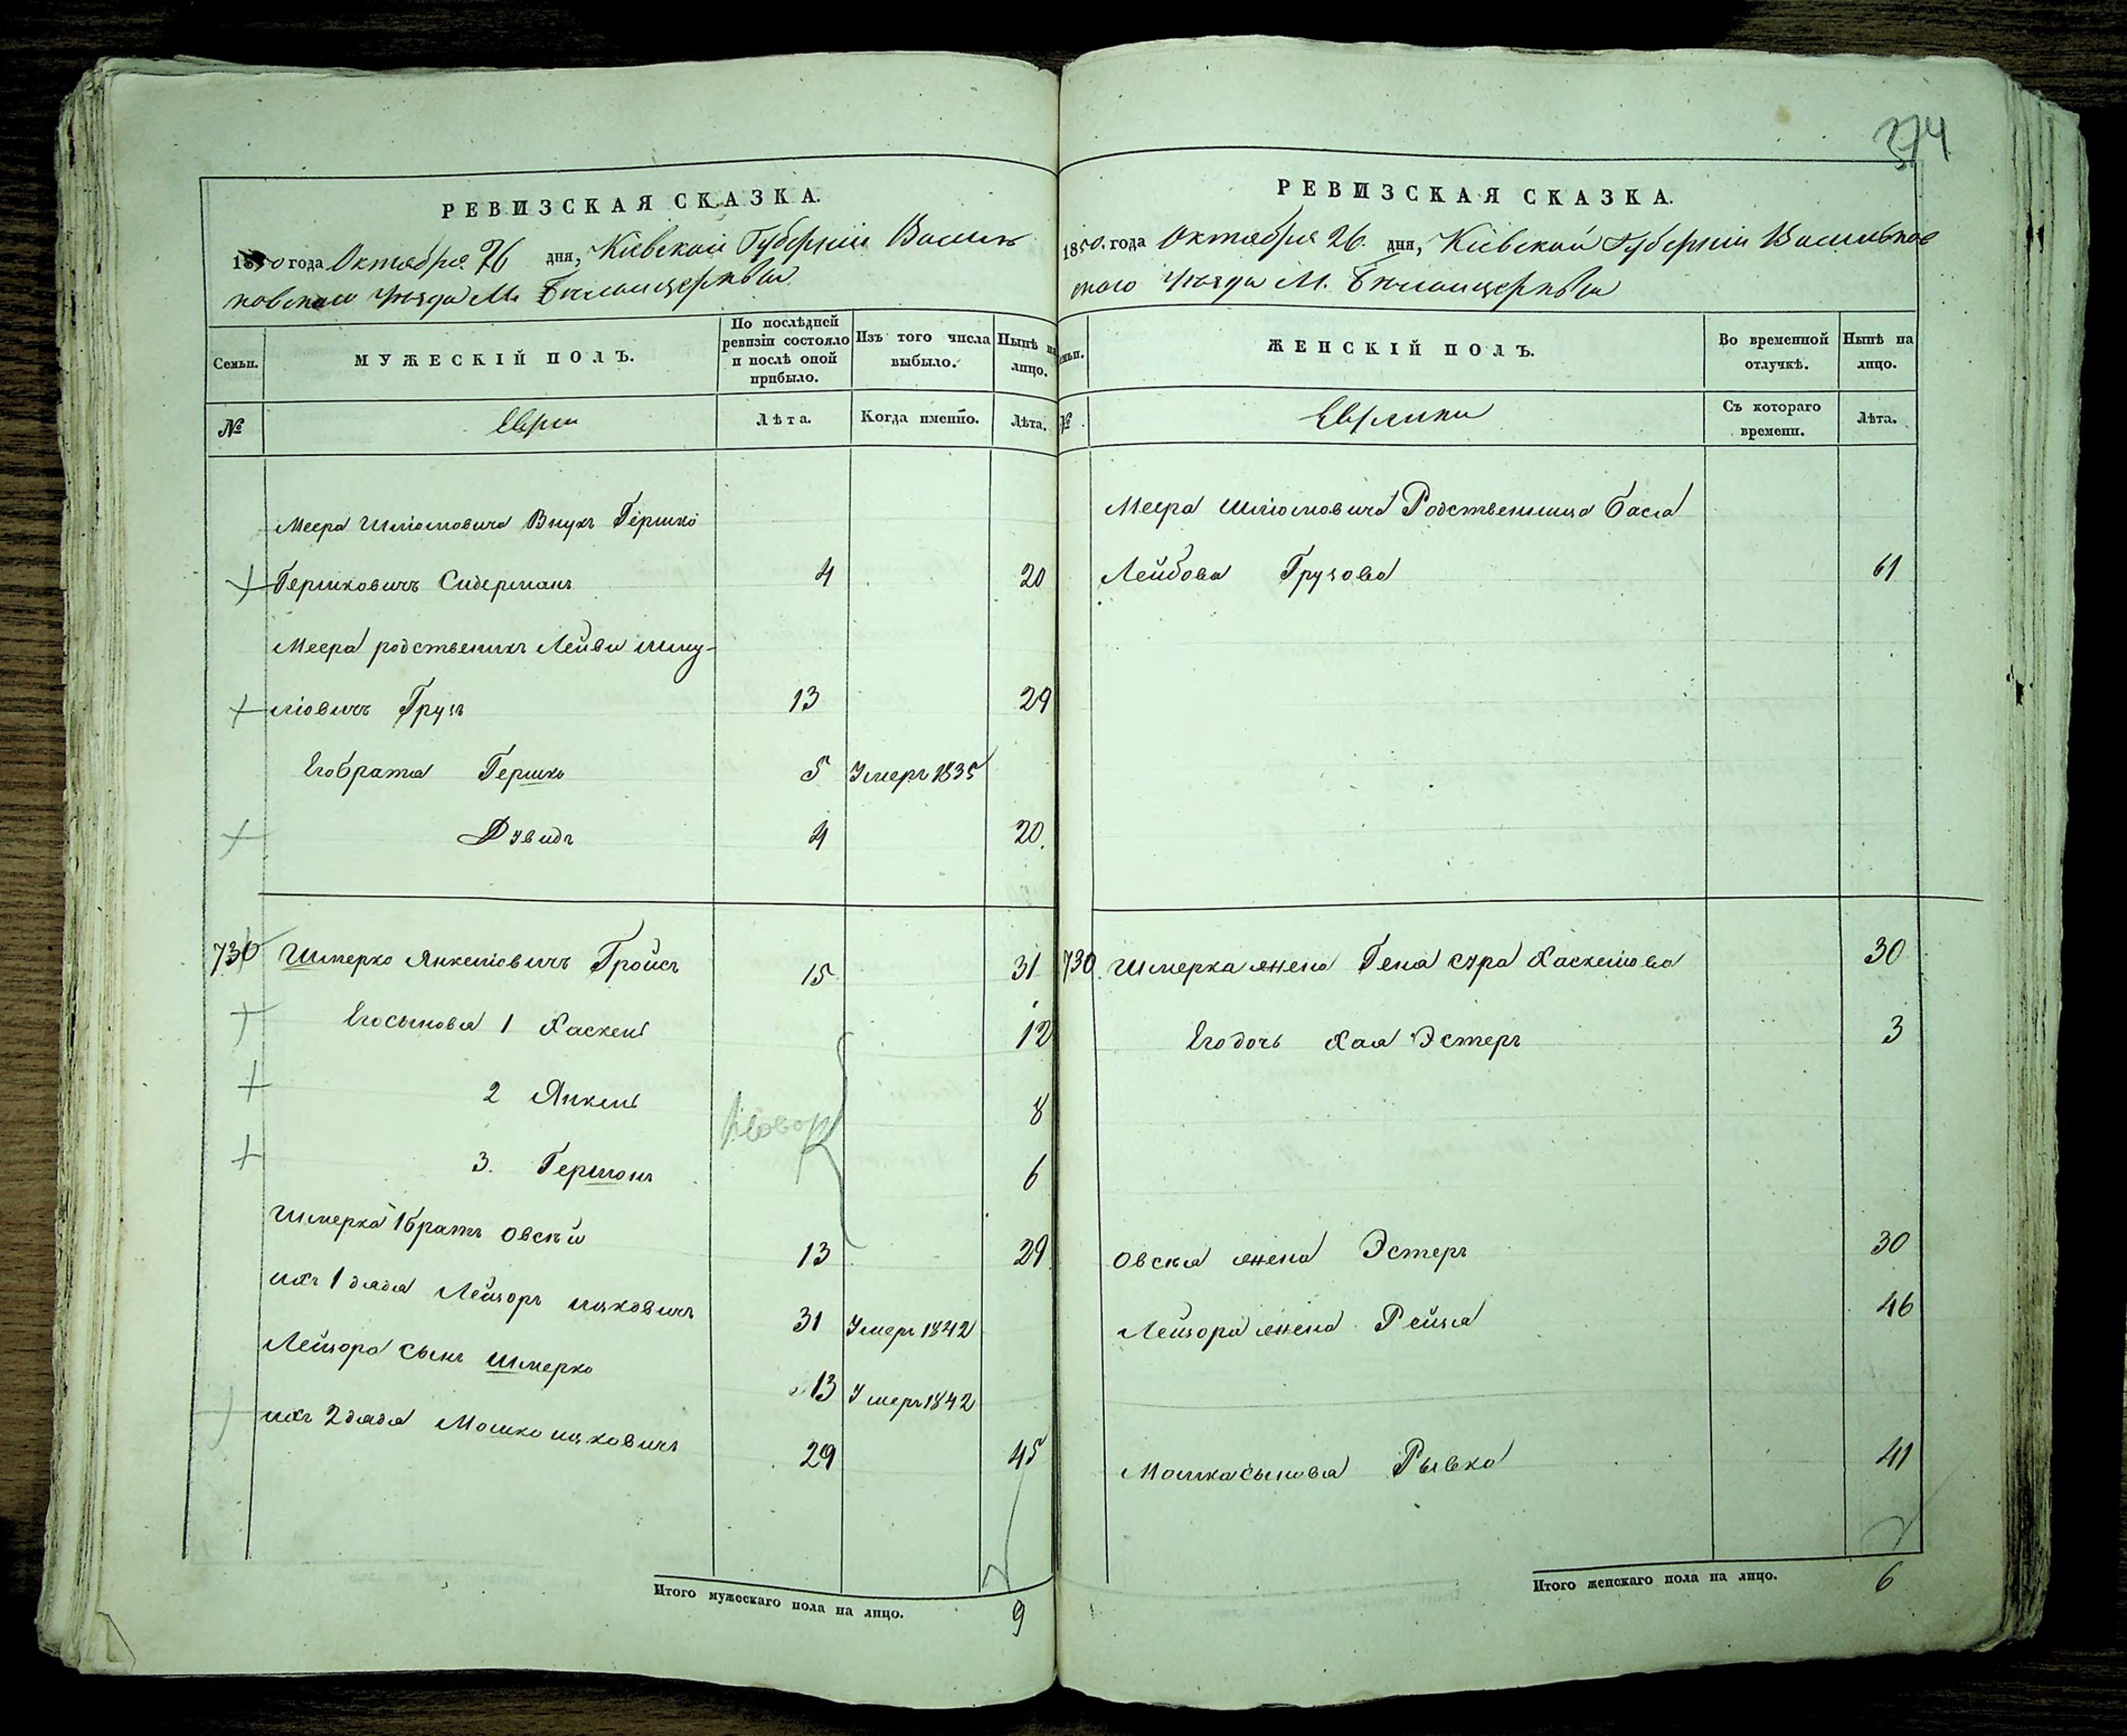 РЕВИЗСКАЯ СКАЗКА.
1850 года Октября 26 дня, Кіевской Губерніи Василь
ковскаго Уезда М. Белоицерквы
Семьи.
МУЖЕСКІЙ ПОЛЪ.
По послѣдней ревизіи состояло и послѣ оной прибыло.
Изъ того числа выбыло.
Нынѣ на лицо.
№
Евреи
Лѣта.
Когда именно.
Лѣта.
Меера Шліомовича Внукъ Гершко
Гершковичъ Сидерманъ 4 20
Меера родственикъ Лейви Шму-
ліовичъ Грузъ 13 29
Его братья Гершко 5 Умеръ 1835
Дувидъ 4 20.
730 Шмерко Янкеліовичъ Гройсъ 15 31
Его сыновья 1 Хаскель 12
2 Янкель 8
3. Гершонъ 6
Шмерка 1 братъ Овсѣй 13 29
ихъ 1 дядя Лейзоръ ицковичъ 31 Умеръ 1842
Лейзора сынъ Шмерко 13 Умеръ 1842
ихъ 2 дядя Мошко ицковичъ 29 45
Итого мужескаго пола на лицо. 9
374
РЕВИЗСКАЯ СКАЗКА.
1850. года Октября 26. дня, Кіевской Губерніи Васильков
скаго Уезда М. Белоицерквы
ЖЕНСКІЙ ПОЛЪ.
Во временной отлучкѣ.
Нынѣ на лицо.
№
Еврейки
Съ котораго времени.
Лѣта.
Меера Шліомовича Родственница Бася
Лейбова Грузова 61
730. Шмерка жена Геня сура Хаскельова 30
Его дочь Хая Эстеръ 3
Овсѣя жена Эстеръ 30
Лейзора жена Рейзя 46
Мошка сыновья Рывка 41
Итого женскаго пола на лицо. 6